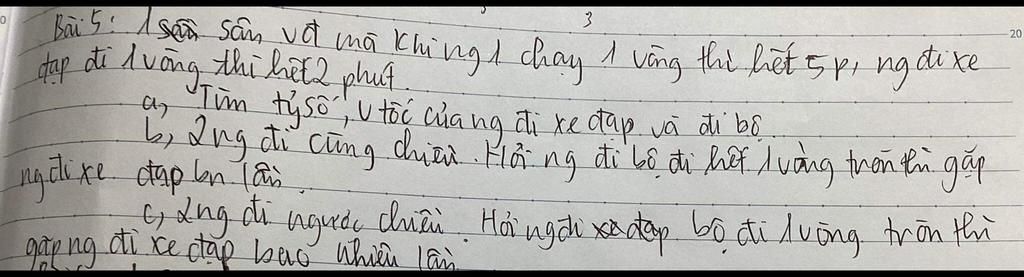 3
Bài 5: 1 sân vđ mà khi ng 1 chạy 1 vòng thì hết 5p, ng đi xe
20
đạp đi 1 vòng thì hết 2 phút.
a, Tìm tỷ số, v tốc của ng đi xe đạp và đi bộ
b, 2ng đi cùng chiều. Hỏi ng đi bộ đi hết 1 vòng tròn thì gặp
ng đi xe đạp bn lần.
c, 2ng đi ngược chiều. Hỏi ng đi bộ đi 1 vòng tròn thì
gặp ng đi xe đạp bao nhiêu lần.